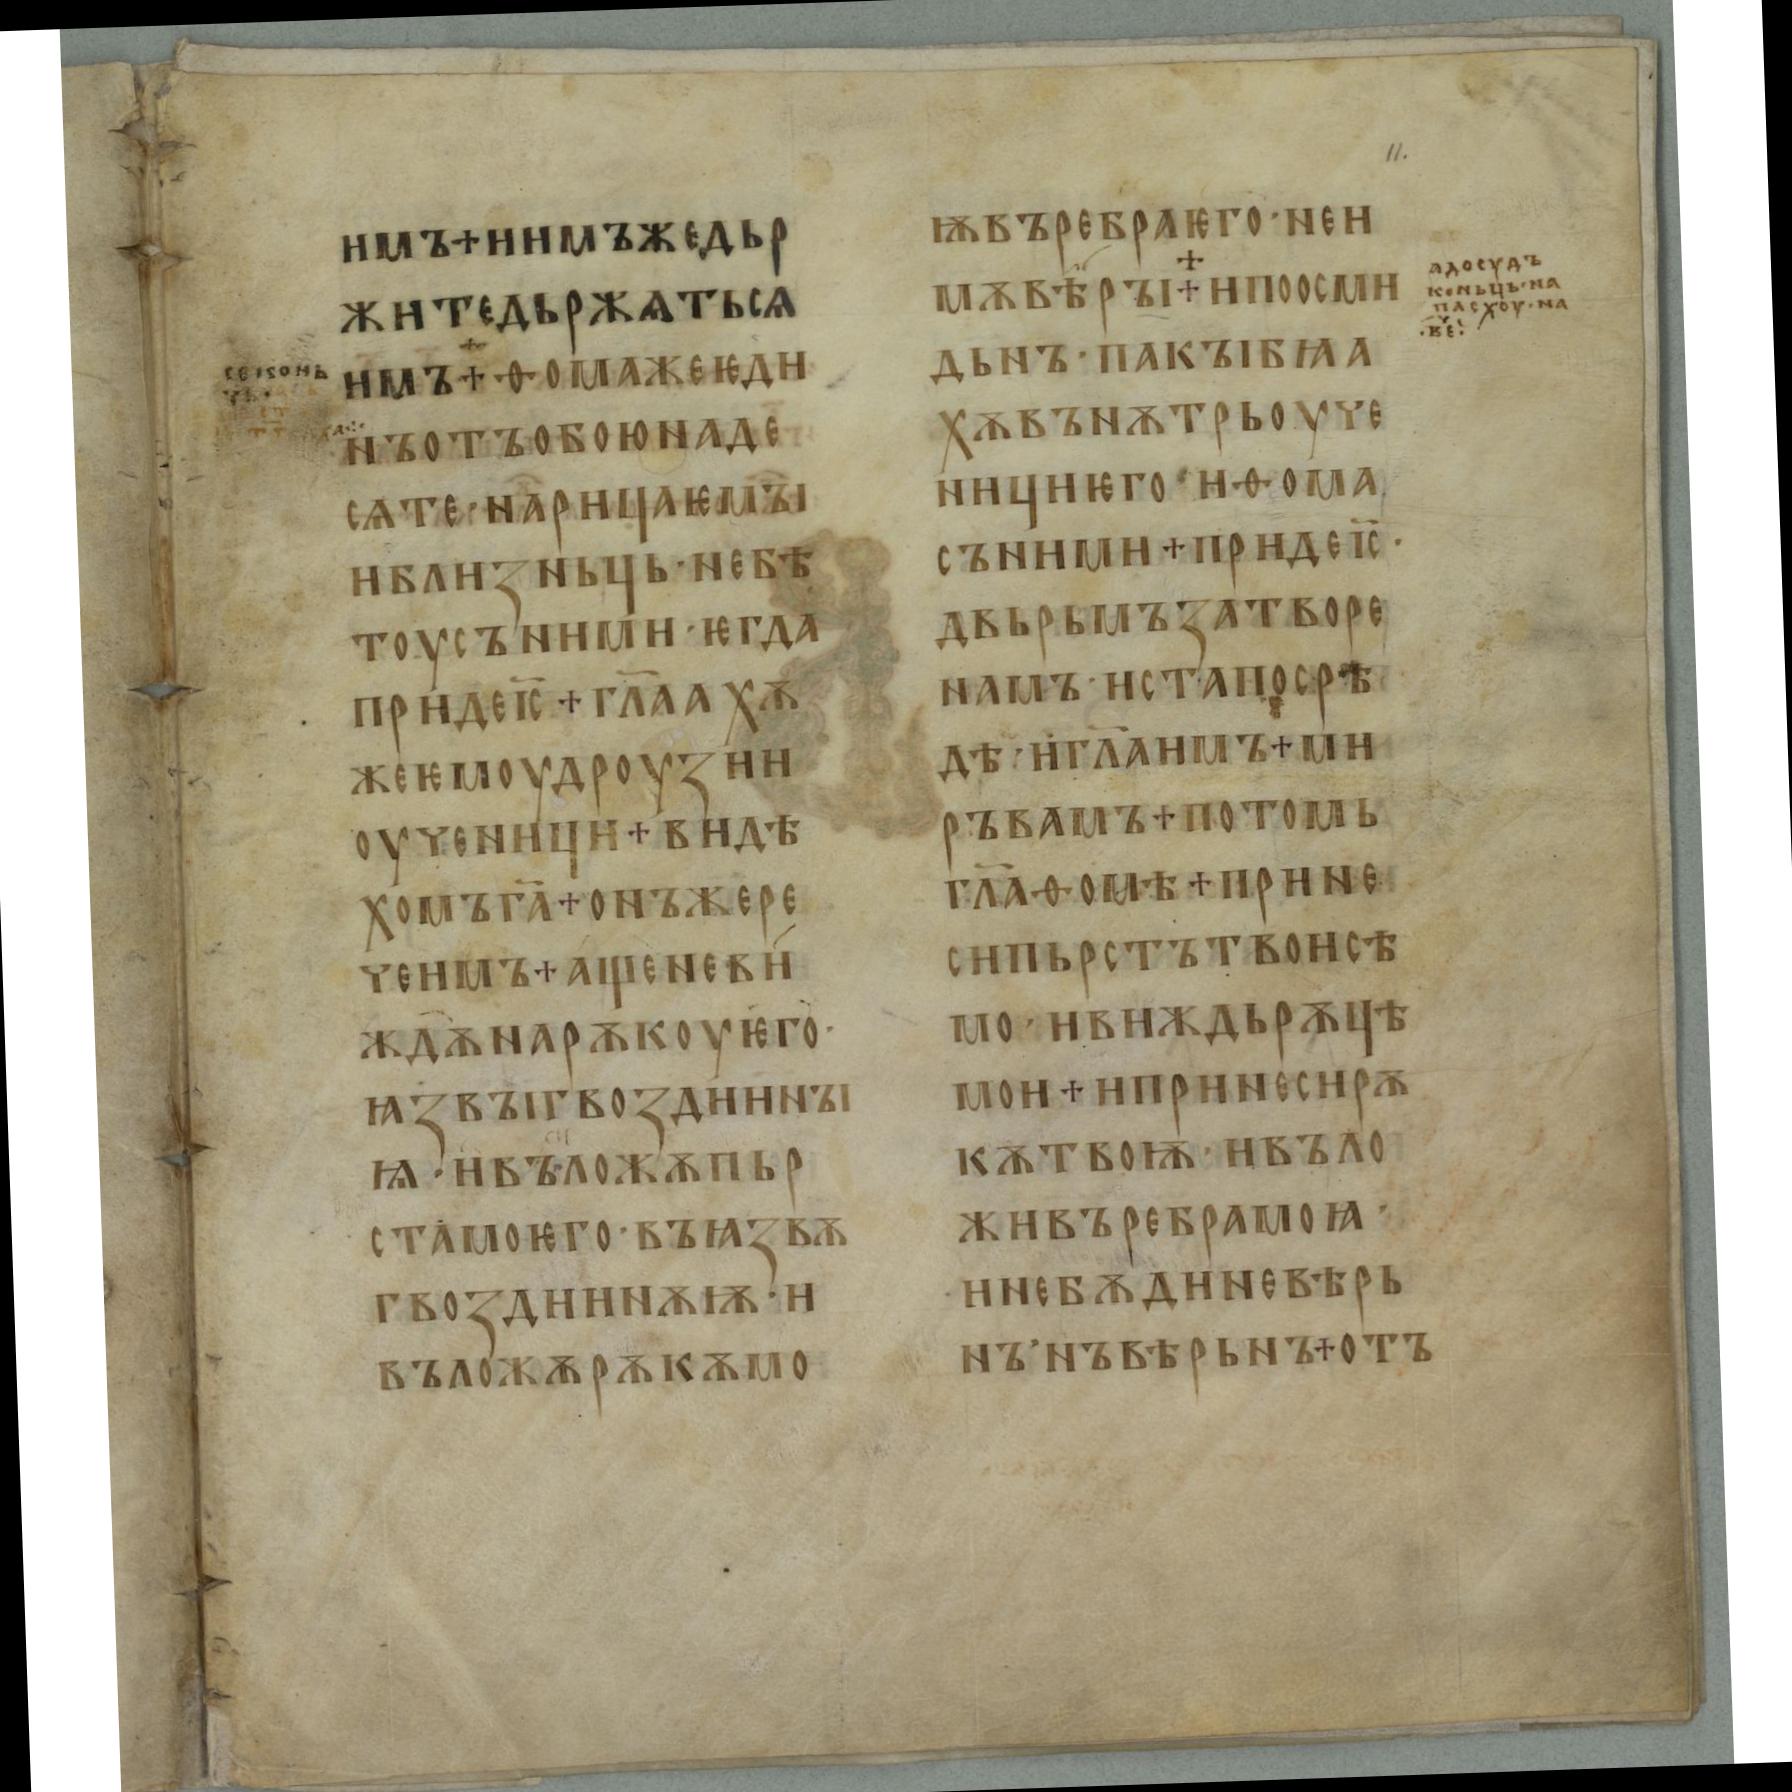 11.
имъ+ннмъжедьр
житедьржѧтьсѧ
имъ+ѳомажеѥди
нъотъобоюнаде
сѧте·нарицаѥмꙑ
иблизньць·небѣ
тоусъними·ѥгда
придеі҃с+гл҃аахѫ
жеѥмоудроузии
оученици+видѣ
хомъга҃+онъжере
чеимъ+ащеневи
ждѫнарѫкоуѥго·
ꙗзвꙑгвоздиинꙑ
ѩ·ивъложѫпьр
стамоѥго·въꙗзвѫ
гвоздиинѫѭ·и
въложѫрѫкѫмо
ѭвъребраѥго·неи
мѫвѣрꙑ+ипоосми
дьнъ·пакꙑбꙗа
хѫвънѫтрьоуче
ницииѥго·иѳома
съними+придеі҃с·
двьрьмъзатворе
намъ·истапосрѣ
дѣ·игл҃аимъ+ми
ръвамъ+потомь
гл҃аѳомѣ+прине
сипьрстътвоисѣ
мо·ивиждьрѫцѣ
мои+ипринесирѫ
кѫтвоѭ·ивъло
живъребрамоꙗ·
инебѫдиневѣрь
нъ·нъвѣрьнъ+отъ
адосудъ
коньць·на
пасхоу·на
·ве҃: